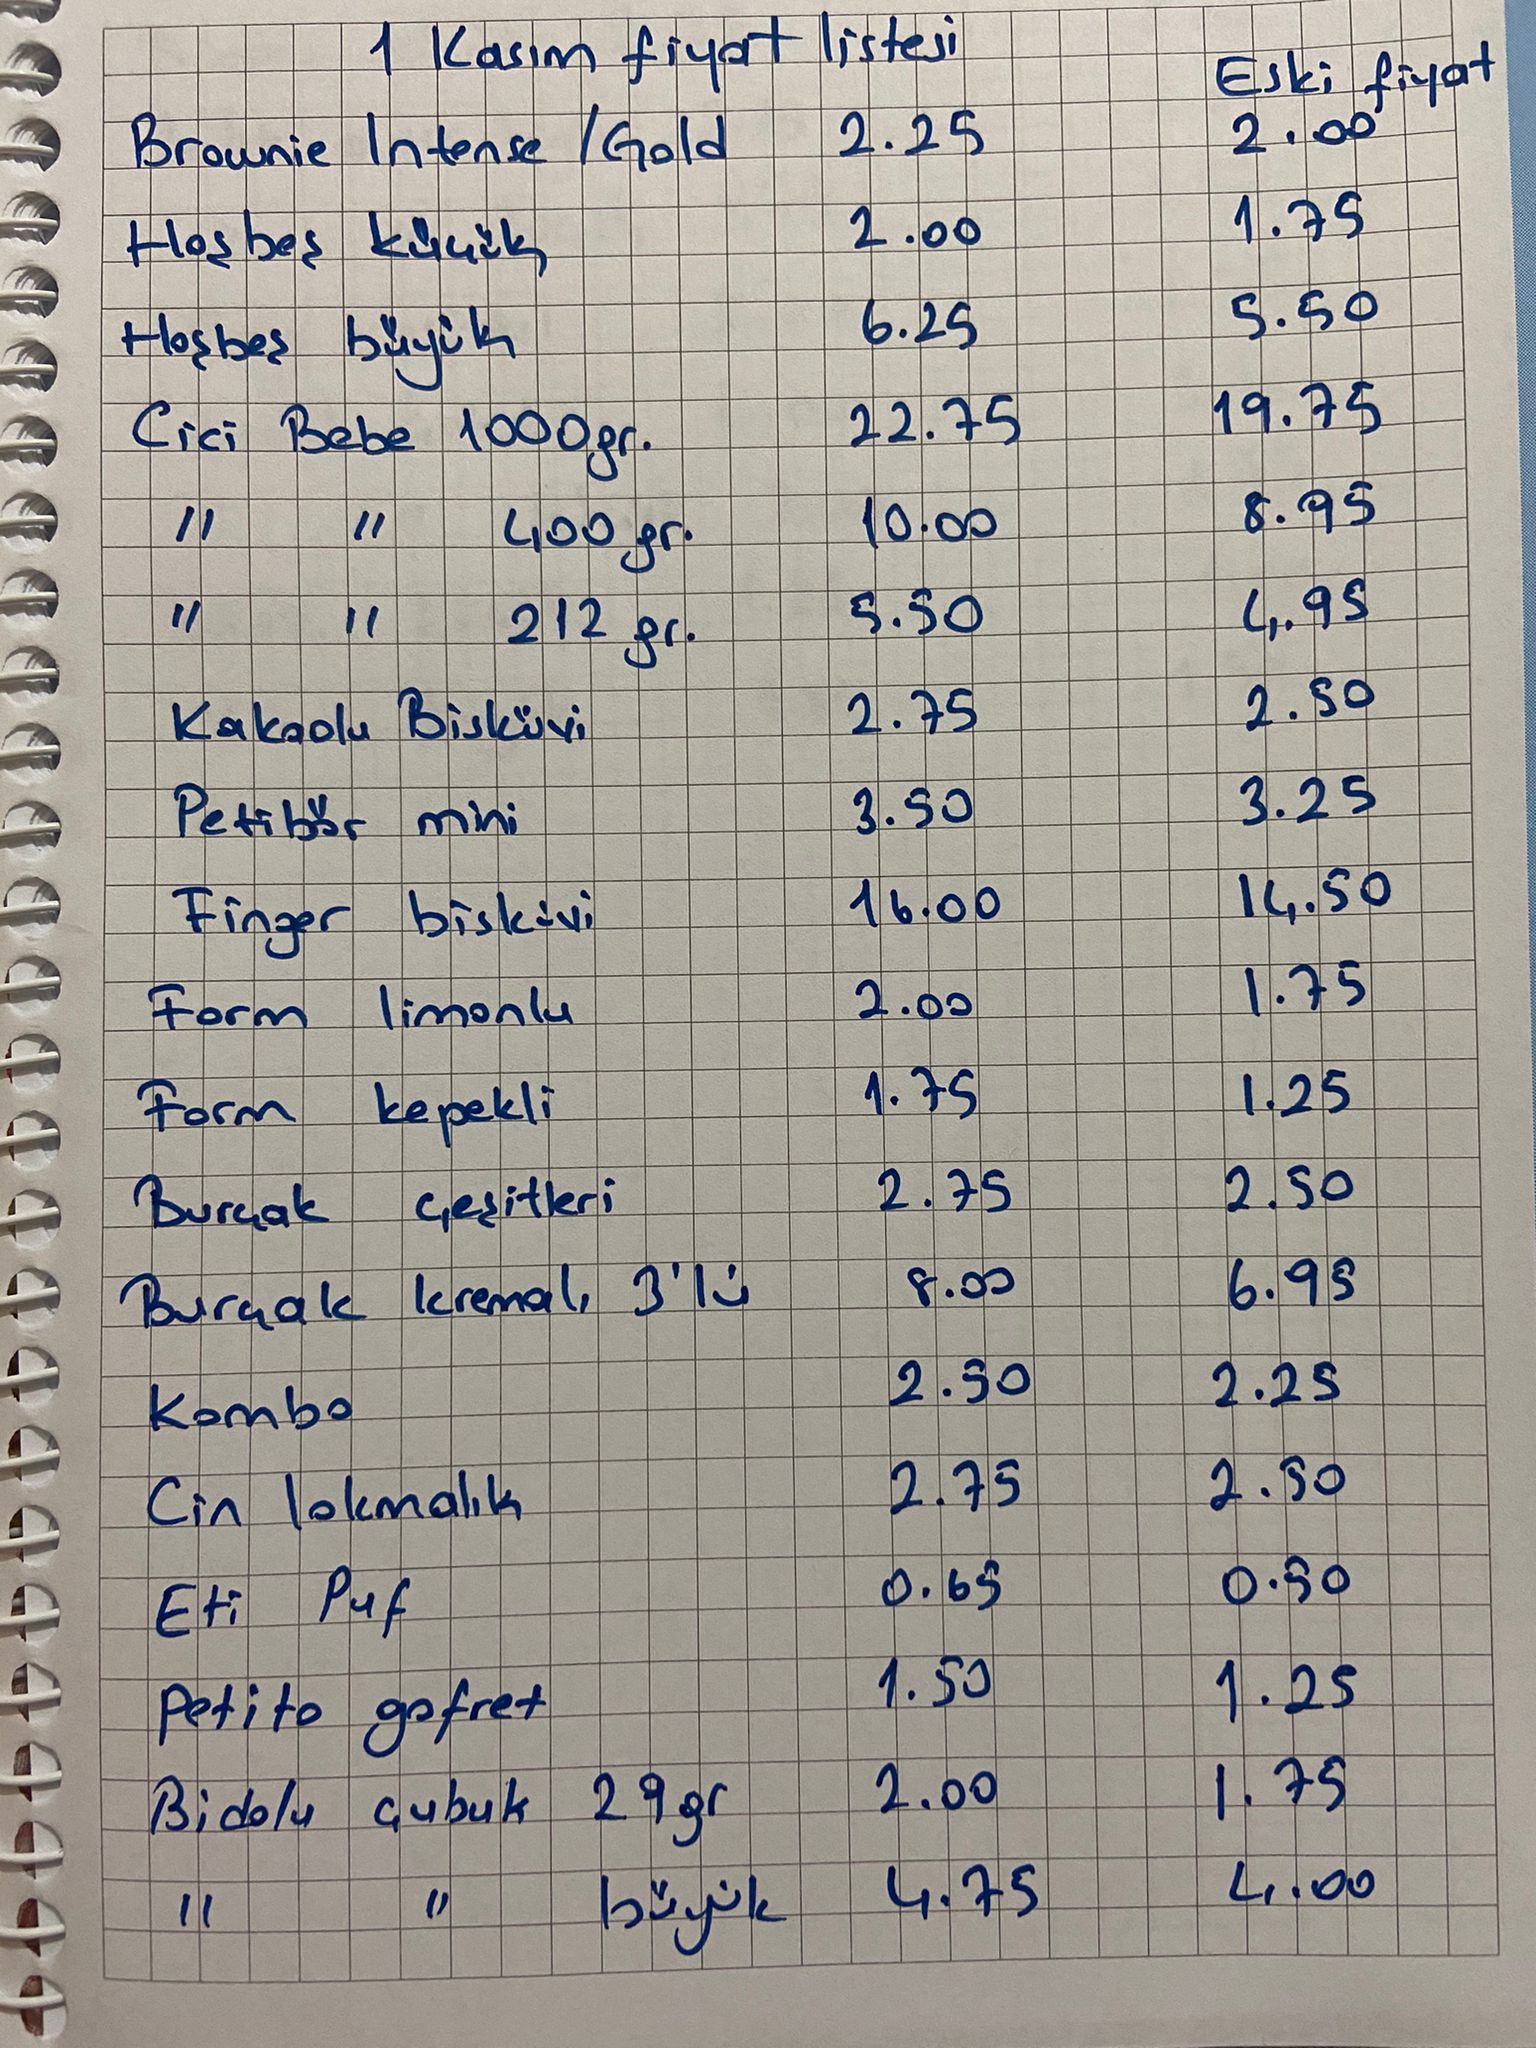 1 Kasım fiyat listesi
Eski fiyat
Brownie Intense /Gold 2.25 2.00
Hoşbeş küçük 2.00 1.75
Hoşbeş büyük 6.25 5.50
Cici Bebe 1000gr. 22.75 19.75
" " 400gr. 10.00 8.95
" " 212 gr. 5.50 4.95
Kakaolu Bisküvi 2.75 2.50
Petibör mini 3.50 3.25
Finger bisküvi 16.00 14.50
Form limonlu 2.00 1.75
Form kepekli 1.75 1.25
Burçak çeşitleri 2.75 2.50
Burçak kremalı 3'lü 8.00 6.95
Kombo 2.50 2.25
Cin lokmalık 2.75 2.50
Eti Puf 0.65 0.50
Petito gofret 1.50 1.25
Bidolu çubuk 29gr 2.00 1.75
" " büyük 4.75 4.00